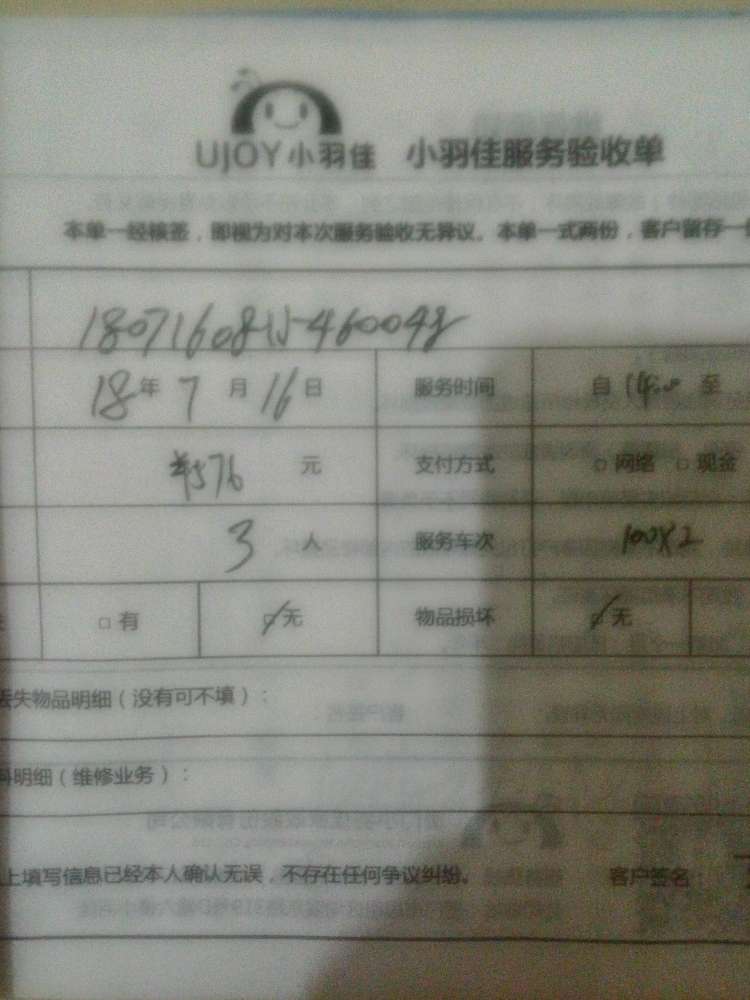 UJOY小羽佳 小羽佳服务验收单
本单一经核签，即视为对本次服务验收无异议。本单一式两份，客户留存一
18年7月16日 服务时间 自14:00至
¥576元 支付方式 □网络 □现金
3人 服务车次 100X2
□有 □无 物品损坏 □无
丢失物品明细（没有可不填）：
料明细（维修业务）：
上填写信息已经本人确认无误，不存在任何争议纠纷。 客户签名：